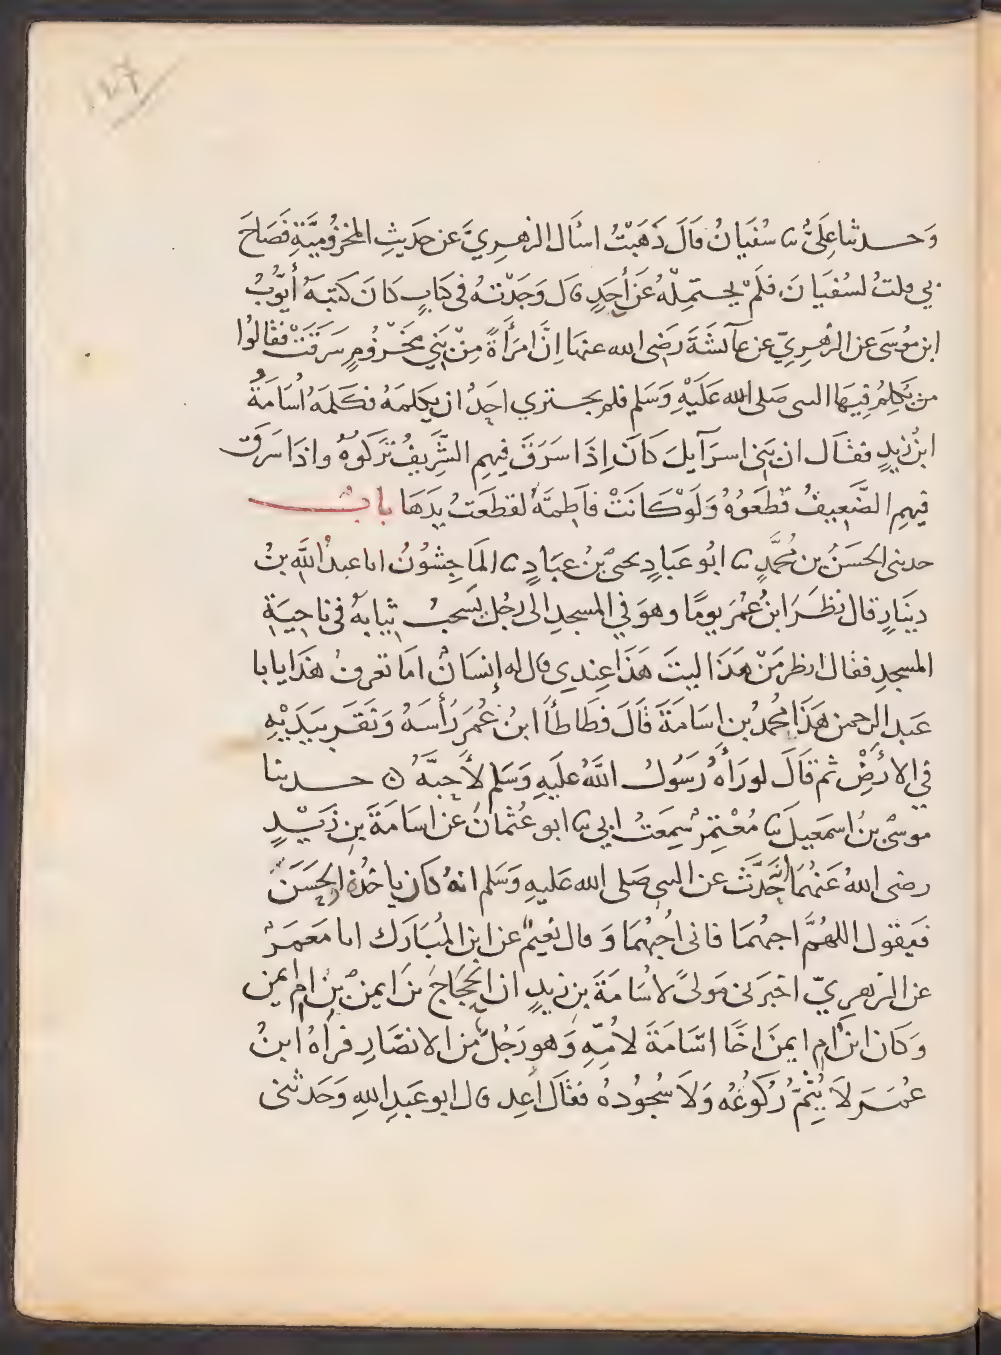 ١٢٦
وَحدثنا عِليُّ ثنا سُفيَانُ قالَ ذَهَبْتُ اسْأل الزهِريَّ عن حَديثِ المخزوُميَّةِ فَصَاحَ
بي قلتُ لسُفيَانَ فلَم تحتمِلْهُ عَن أحَدٍ قال وَجَدْتهُ في كتابٍ كانَ كتبَهُ أيوُّبُ
ابن موُسَى عن الزهِريِّ عن عآئشَةَ رَضِى الله عنهَا اِنَّ امرَأةً مِنْ بَنِي مَخزوُمٍ سَرَقَتْ فقالوُا
من يُكلِمُ فِيهَا النبى صَلى الله عَلَيْهِ وَسَلم فلم يجتري احَدُ ان يكلمَهُ فكلمَهُ اُسَامَةُ
ابنُ زيدٍ فقال ان بَنِي اسرَآيلَ كانَ اِذَا سَرَقَ فيهِم الشَّرِيفُ تَرَكوُهُ واذَا سَرَقَ
فيهِم الضَّعِيفُ قَطَعوُهُ وَلَوْ كَانَتْ فاطِمَةُ لقطَعتُ يَدَهَا بابُ
حدثنى الحسَنُ بن محُمَّدٍ ثنا ابُو عَبادٍ يحيىَ بنُ عبَادٍ ثنا المَاجِشوُنُ انا عبدُ اللهِ بنُ
دينَارٍ قال نظَرَ ابنُ عُمَرَ يومًا وهوَ في المسجدِ الى رجُلٍ يَسحَبُ ثيابَهُ في ناحِيَةٍ
المسجدِ فقال انظر مَنْ هَذَا ليتَ هَذَا عِندِي قال له إنسَانٌ امَا تعرفُ هَذَا يابا
عَبدِ الرحمن هَذَا محُمدُ بن اسَامَةَ قَالَ فطَاطَأَ ابنُ عُمَرَ رَأسَهُ وَنَقَرَ بيَدَيْهِ
في الارْضِ ثم قَالَ لو رَآهُ رَسُولُ اللهُ عَليَهِ وَسَلم لأَحَبَّهُ ۞ حدثنا
موسَى بنُ اسمَعِيلَ ثنا مُعْتمِرٌ سَمِعَتُ ابي ثنا ابو عُثمانُ عن اسَامَةَ بنِ زَيْدٍ
رضى اللهُ عَنهُمَا حَدَّثَ عن النبى صَلى الله عَليهِ وَسَلم انهُ كان ياخذُهُ والحسَنَ
فيَقول اللهُمَّ احِبهُمَا فانى اُحِبهُمَا وَقال نعَيمٌ عن ابن المُبَارَكِ انا مَعمَرٌ
عن الزهرِيّ اخبرَني مَولىً لاسَامَةَ بن زيدٍ ان الحجَاجَ بنَ ايمن بن ام ايمن
وَكان ابن ام ايمنَ اخًا اسَامَةَ لاُمِّهِ وَهو رَجُلٌ من الانصَارِ فرآهُ ابنُ
عُمَرَ لَا يُتِمُّ رُكوُعَهُ وَلاَ سُجُودَهُ فقَالَ اَعِد قال ابو عَبدِ اللهِ وَحَدثنى